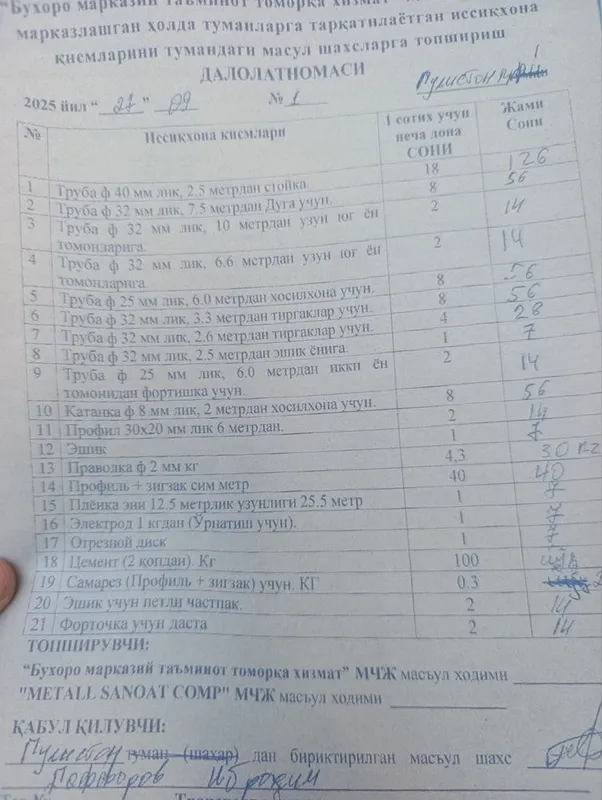 "Бухоро марказий таъминот томорқа хизмат"
марказлашган ҳолда туманларга тарқатилаётган иссиқхона
қисмларини тумандаги масул шахсларга топшириш
ДАЛОЛАТНОМАСИ
2025 йил "27" 09 № 1
№ Иссиқхона қисмлари 1 сотих учун неча дона СОНИ Жами Сони
1 Труба ф 40 мм лик, 2.5 метрдан стойка. 18 126
2 Труба ф 32 мм лик, 7.5 метрдан Дуга учун. 8 56
3 Труба ф 32 мм лик, 10 метрдан узун юг ён 2 14
томонларига.
4 Труба ф 32 мм лик, 6.6 метрдан узун юг ён 2 14
томонларига
5 Труба ф 25 мм лик, 6.0 метрдан хосилхона учун. 8 56
6 Труба ф 32 мм лик, 3.3 метрдан тиргаклар учун. 8 56
7 Труба ф 32 мм лик, 2.6 метрдан тиргаклар учун. 4 28
8 Труба ф 32 мм лик, 2.5 метрдан эшик ёнига. 1 7
9 Труба ф 25 мм лик, 6.0 метрдан икки ён 2 14
томонидан фортишка учун.
10 Катанка ф 8 мм лик, 2 метрдан хосилхона учун. 8 56
11 Профил 30х20 мм лик 6 метрдан. 2 14
12 Эшик 1 7
13 Праволка ф 2 мм кг 4,3 30 кг
14 Профиль + зигзак сим метр 40 40
15 Плёнка эни 12.5 метрлик узунлиги 25.5 метр 1 7
16 Электрод 1 кгдан (Ўрнатиш учун). 1 7
17 Отрезной диск 1 7
18 Цемент (2 қопдан). Кг 100
19 Саморез (Профиль + зигзак) учун. КГ 0.3
20 Эшик учун петли частпак. 2 14
21 Форточка учун даста 2 14
ТОПШИРУВЧИ:
"Бухоро марказий таъминот томорқа хизмат" МЧЖ масъул ходими
"METALL SANOAT COMP" МЧЖ масъул ходими
ҚАБУЛ ҚИЛУВЧИ:
туман (шаҳар) дан бириктирилган масъул шахс